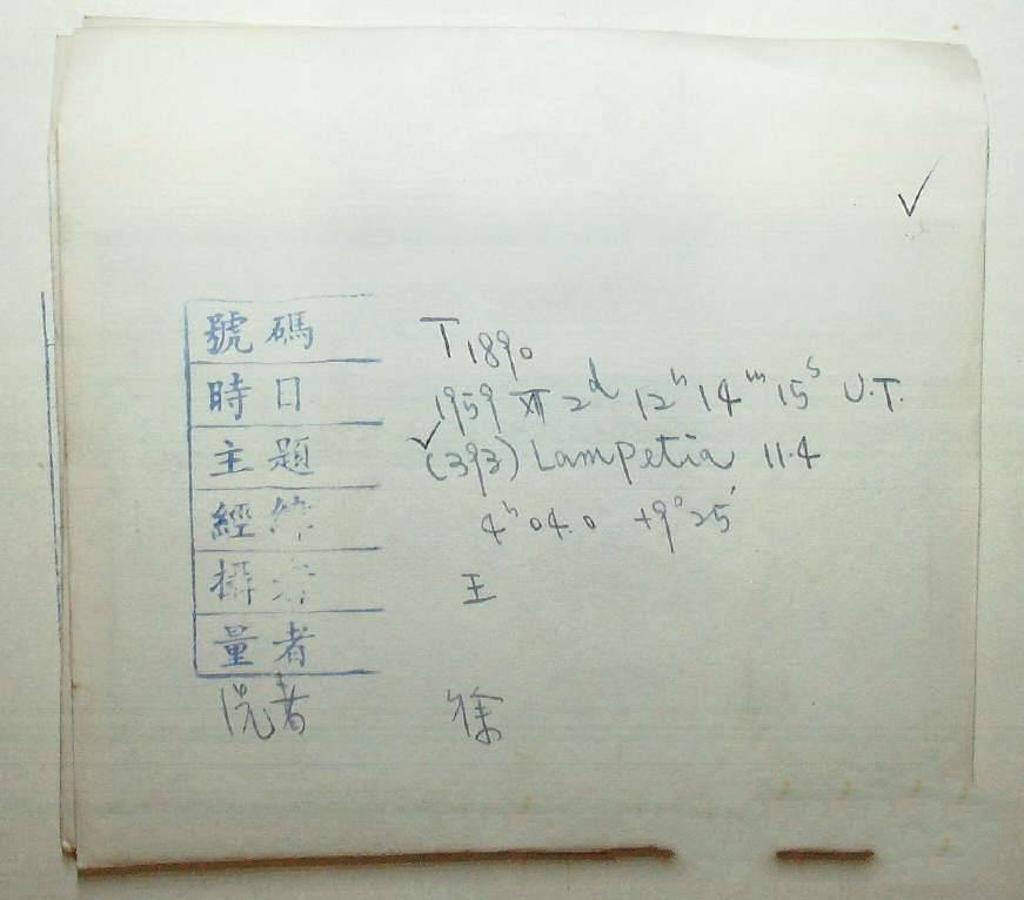 ✓
號碼 T1890
時日 1959 XII 2ᵈ 12ʰ 14ᵐ 15ˢ U.T.
主題 ✓(393) Lampetia 11.4
經緯 4ʰ 04.0 +9°25′
攝者 王
量者
者 徐